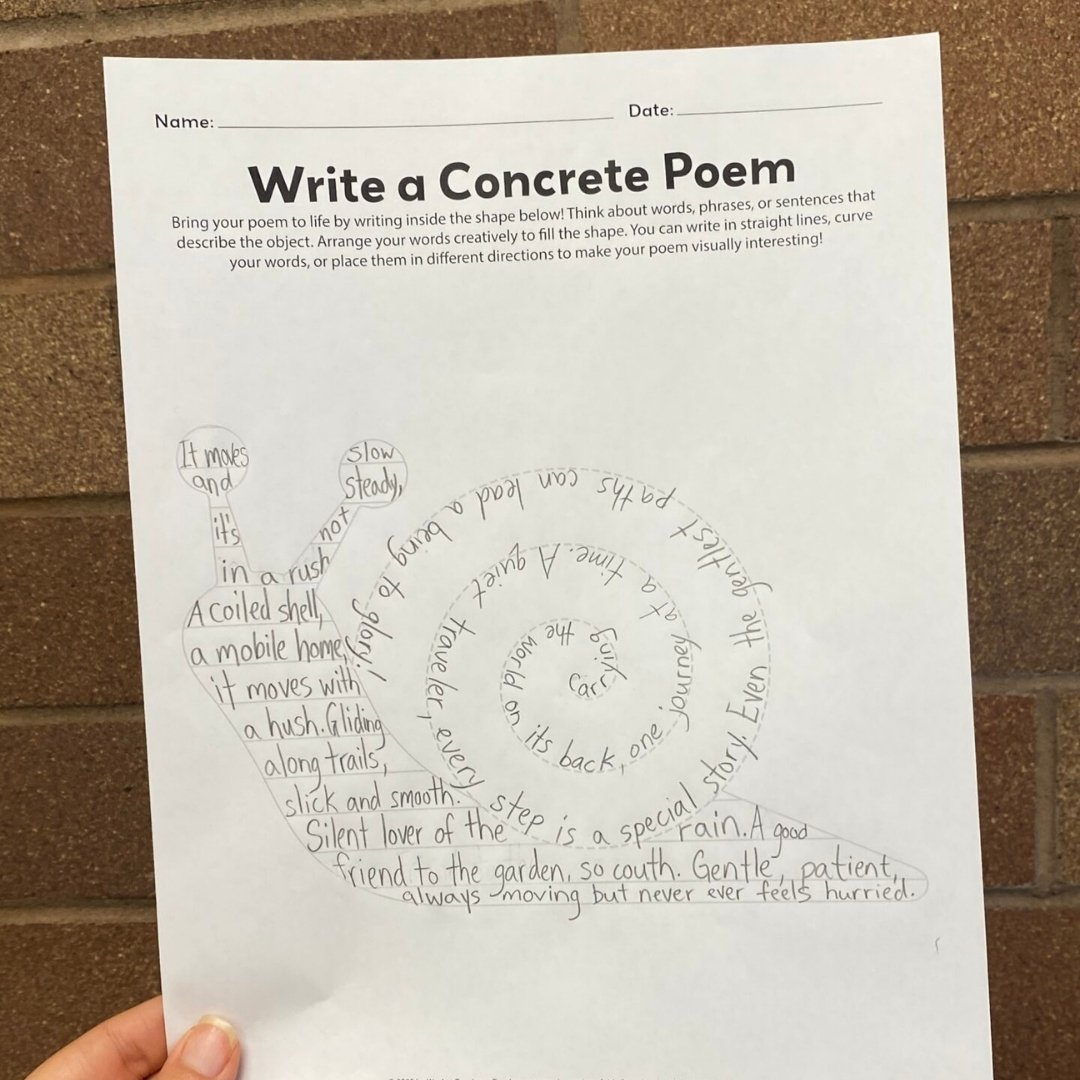 Name:
Date:
Write a Concrete Poem
Bring your poem to life by writing inside the shape below! Think about words, phrases, or sentences that
describe the object. Arrange your words creatively to fill the shape. You can write in straight lines, curve
your words, or place them in different directions to make your poem visually interesting!
It moves
and
it's
slow
steady,
not
in a rush
A coiled shell,
a mobile home,
it moves with
a hush. Gliding
along trails,
slick and smooth.
Silent lover of the rain. A good
friend to the garden, so couth. Gentle, patient,
always moving but never ever feels hurried.
Carrying the world on its back, one journey at a time. A quiet traveler, every step is a special story. Even the gentlest paths can lead a being to glory!